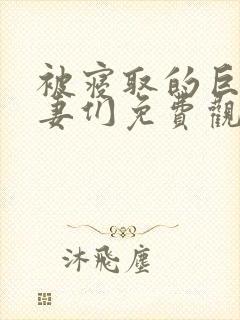 被寝取的巨
妻们免費觀
沐飛塵